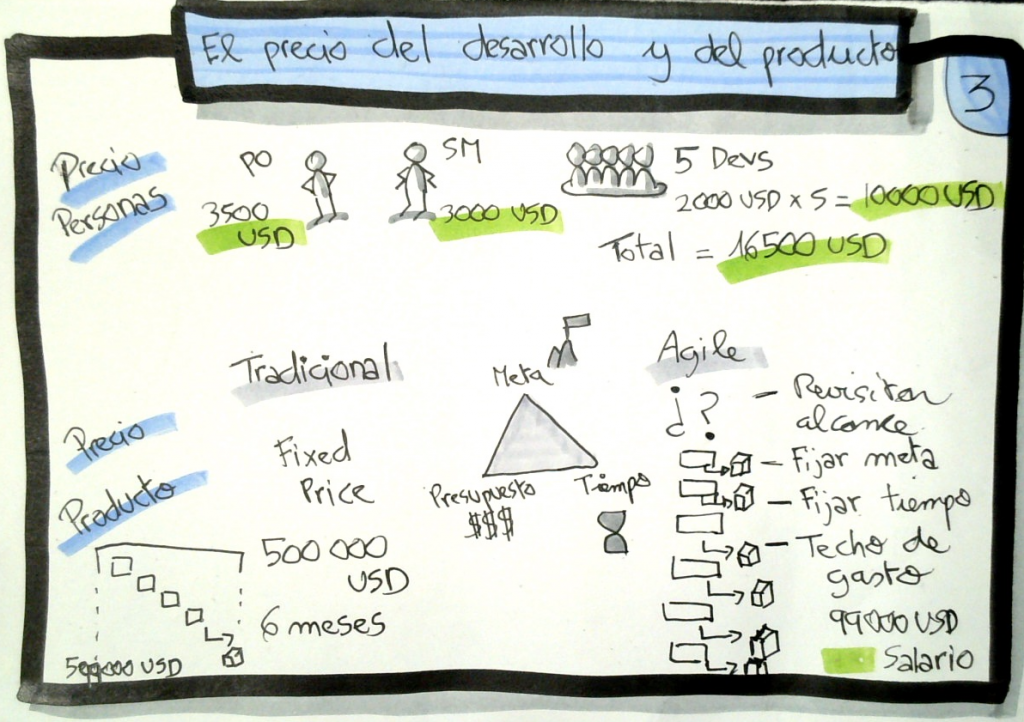 El precio del desarrollo y del producto
3
Precio
Personas
PO
3500
USD
SM
3000 USD
5 Devs
2000 USD x 5 = 10000 USD
Total = 16500 USD
Tradicional
Precio
Producto
Fixed
Price
500 000
USD
6 meses
Meta
Presupuesto
$$$
Tiempo
Agile
¿?
- Revisitar
alcance
- Fijar meta
- Fijar tiempo
- Techo de
gasto
99000 USD
Salario